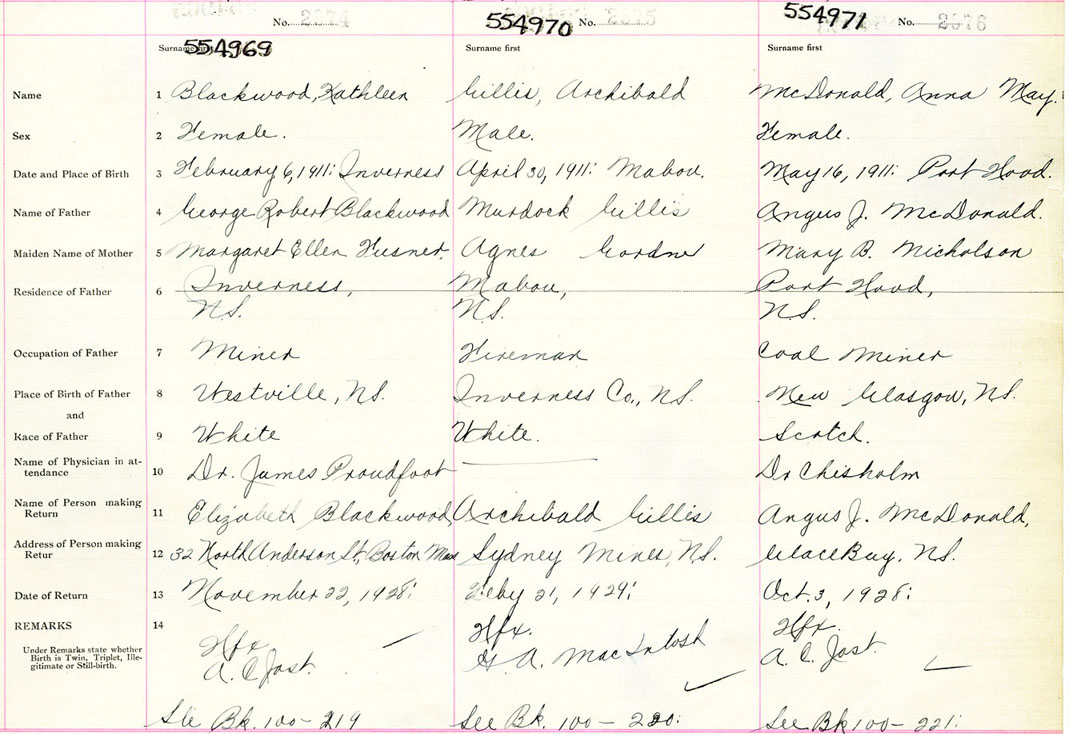 No. 2074
554970 No. 2075
554971 No. 2076
Surname first 554969
Surname first
Surname first
Name 1 Blackwood, Kathleen Gillis, Archibald McDonald, Anna May.
Sex 2 Female. Male. Female.
Date and Place of Birth 3 February 6, 1911: Inverness April 30, 1911: Mabou. May 16, 1911: Port Hood.
Name of Father 4 George Robert Blackwood Murdock Gillis Angus J. McDonald.
Maiden Name of Mother 5 Margaret Ellen Agnes Mary B. Nicholson
Residence of Father 6 Inverness, Mabou, Port Hood,
N.S. N.S. N.S.
Occupation of Father 7 Miner Fireman Coal Miner
Place of Birth of Father 8 Westville, N.S. Inverness Co., N.S. New Glasgow, N.S.
and
Race of Father 9 White White. Scotch.
Name of Physician in at-
tendance 10 Dr. James Proudfoot Dr Chisholm
Name of Person making
Return 11 Elizabeth Blackwood Archibald Gillis Angus J. McDonald,
Address of Person making
Retur 12 32 North Anderson St., Boston Mass Sydney Mines, N.S. Glace Bay, N.S.
Date of Return 13 November 22, 1928: Feby 21, 1929: Oct. 3, 1928:
REMARKS 14 Hfx. Hfx. Hfx.
Under Remarks state whether
Birth is Twin, Triplet, Ille-
gitimate or Still-birth.
A. C. Jost. A. MacIntosh A. C. Jost.
See Bk. 100 - 219 See Bk. 100 - 220: See Bk 100 - 221: